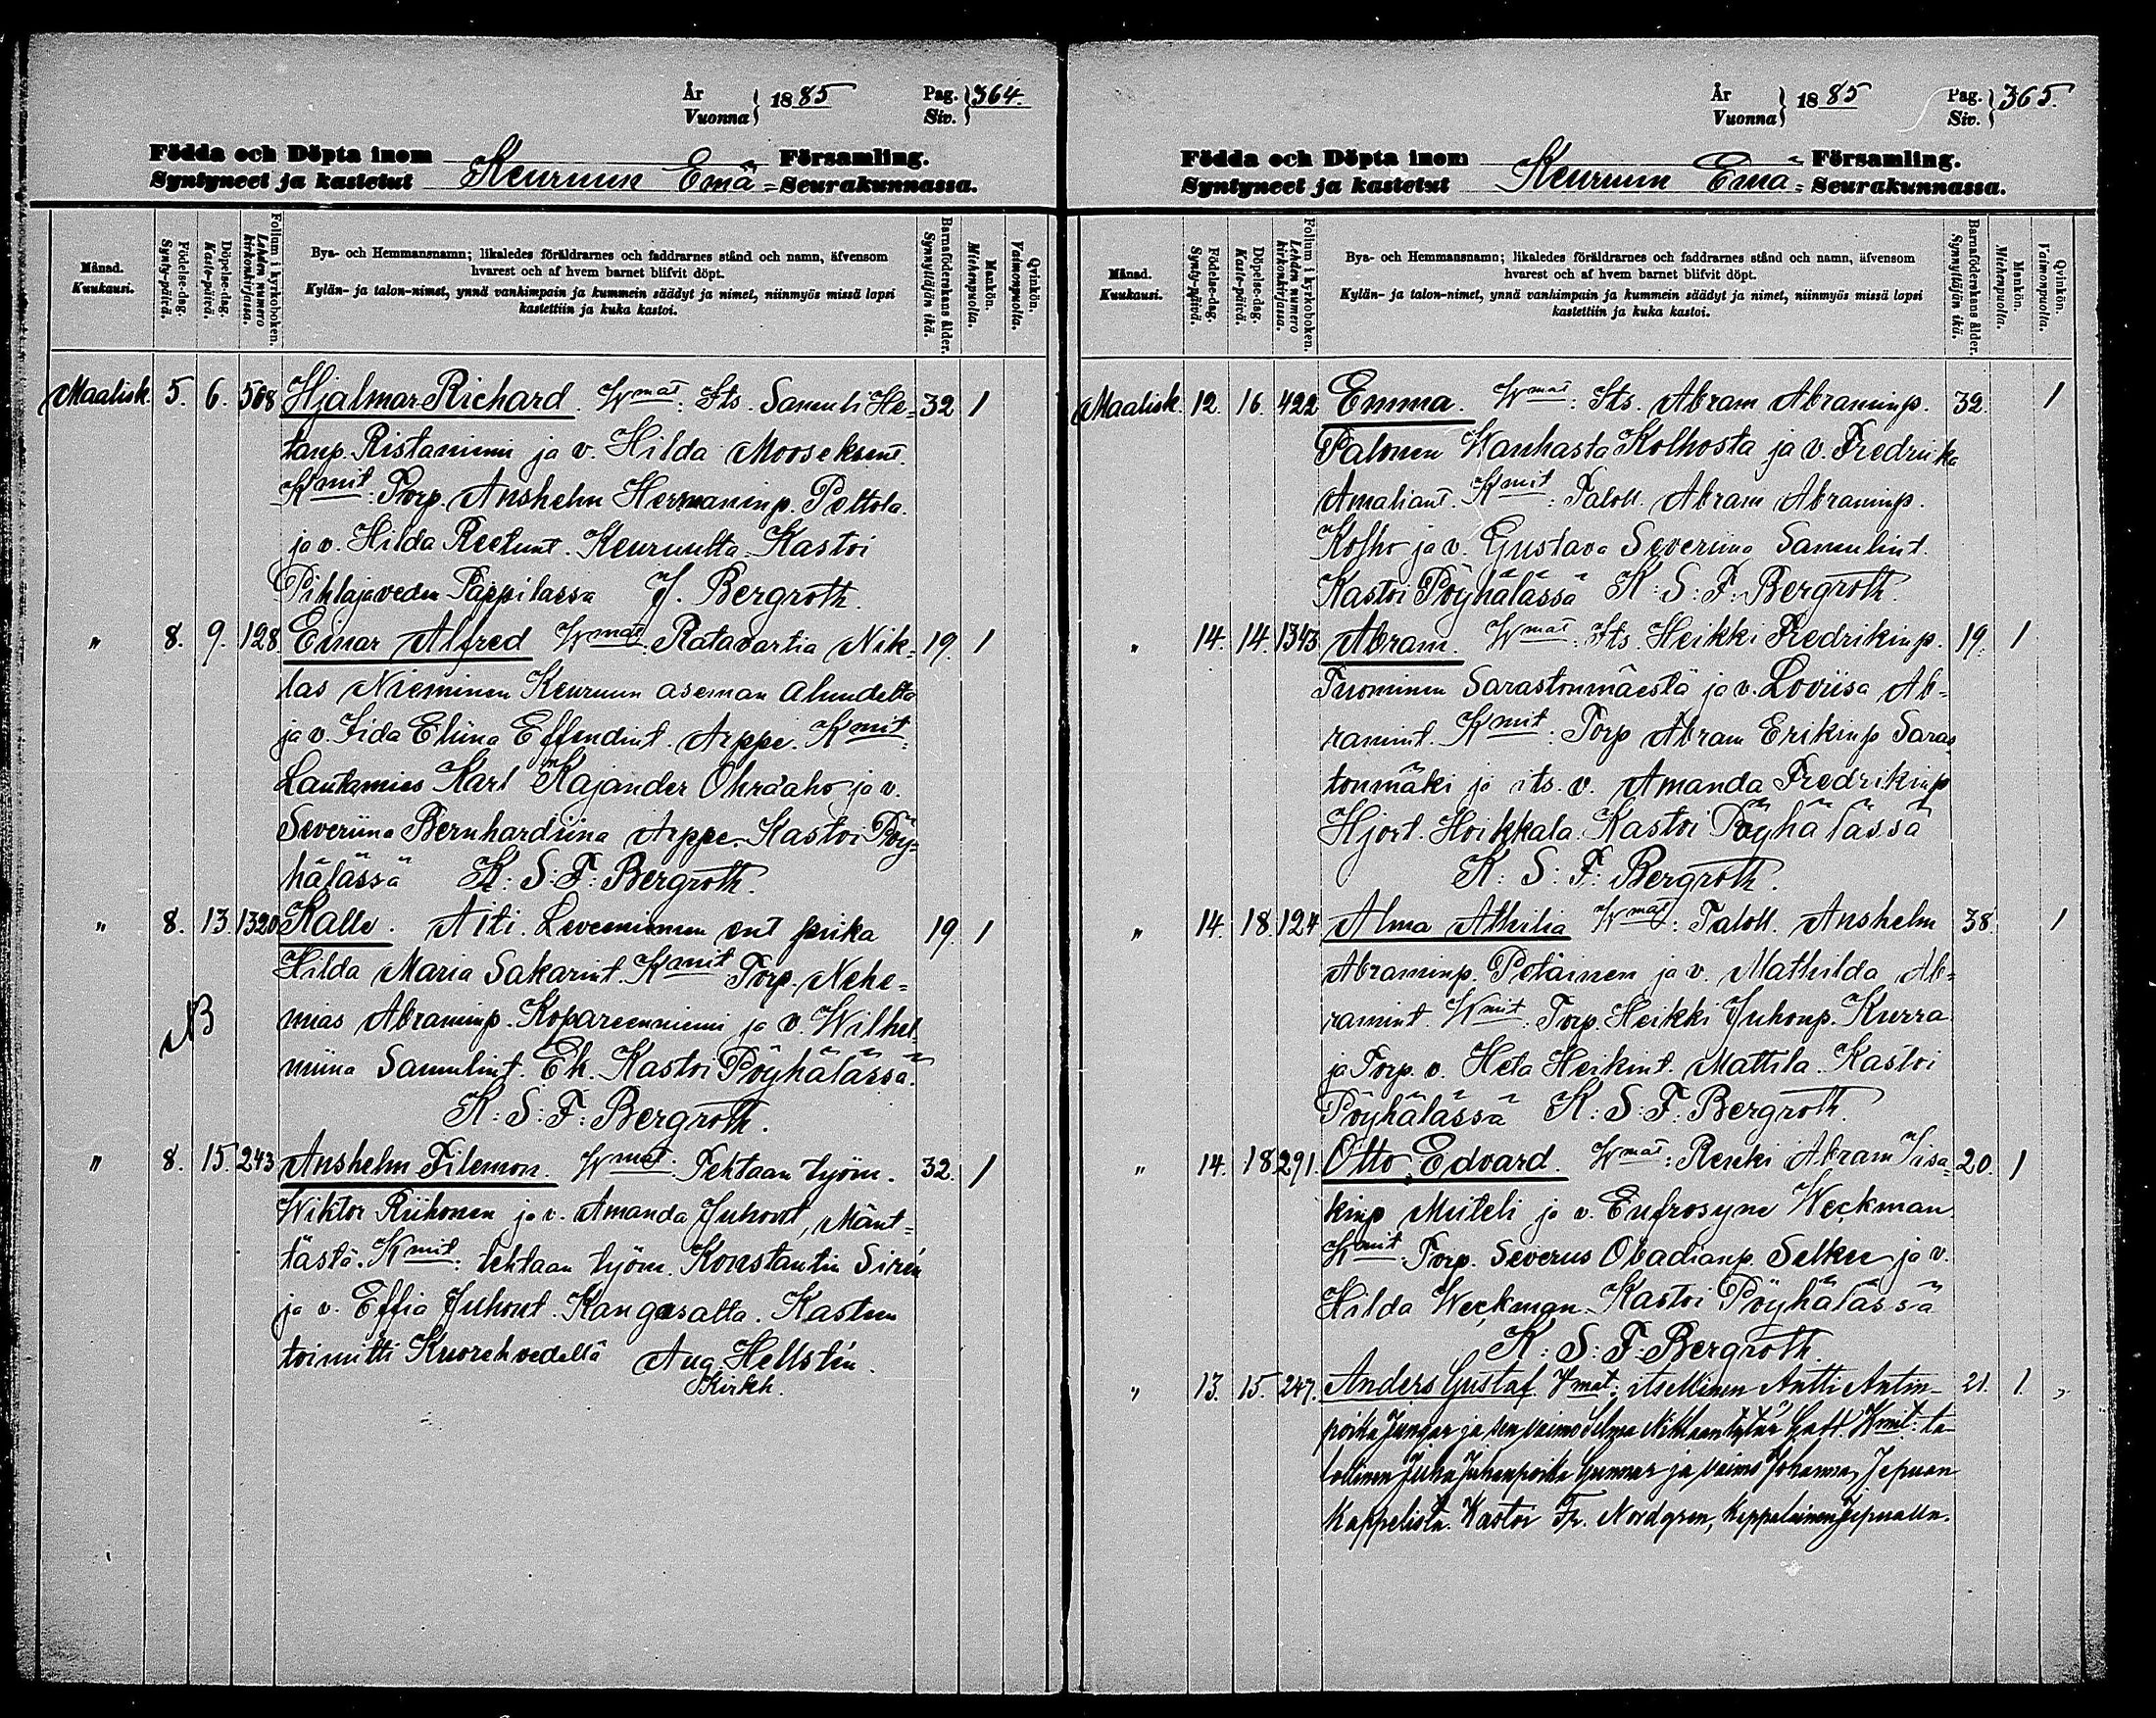 År
Vuonna } 1885 Pag. Siv. } 364.
Födda och Döpta inom Församling.
Syntyneet ja kastetut Keuruun Emä = Seurakunnassa.
Månad. Kuukausi.
Födelse-dag. Synty-päivä.
Döpelse-dag. Kaste-päivä.
Folium i kyrkoboken. Lehden numero kirkonkirjassa.
Bya- och Hemmansnamn; likaledes föräldrarnes och faddrarnes stånd och namn, äfvensom
hvarest och af hvem barnet blifvit döpt.
Kylän- ja talon-nimet, ynnä vanhimpain ja kummein säädyt ja nimet, niinmyös missä lapsi
kastettiin ja kuka kastoi.
Barnaföderskans ålder. Synnyttäjän ikä.
Mankön. Miehenpuolta.
Qvinkön. Vaimonpuolta.
Maalisk. 5. 6. 508 Hjalmar Richard. Wmat: Its. Samuli He- 32 1
tanp. Ristaniemi ja v. Hilda Mooseksent.
Kmit: Torp. Anshelm Hermaninp. Peltola
ja v. Hilda Reetunt. Keuruulta. Kastoi
Pihlajaveden Pappilassa J. Bergroth.
" 8. 9. 128 Einar Alfred Wmat. Ratavartia Nik- 19. 1
las Nieminen Keuruun aseman alundelta
ja v. Iida Eliina Effendint. Arppe. Kmit:
Lautamies Karl Kajander Ohraaho ja v.
Severiina Bernhardiina Arppe. Kastoi Pöy-
hälässä K: S: F: Bergroth.
" 8. 13. 1320 Kalle. Äiti. ent piika 19. 1
Hilda Maria Sakarint. Kmit Torp. Nehe-
mias Abraminp. Kopareenniemi ja v. Wilhel-
NB
miina Samulint. Ek. Kastoi Pöyhälässä.
K: S: F: Bergroth.
" 8. 15. 243 Anshelm Filemon. Wmat. Tehtaan työm. 32. 1
Wiktor Riihonen ja v. Amanda Juhont, Mänt-
tästä. Kmit: tehtaan työm. Konstantin Sirén
ja v. Effia Juhont. Kangasalta. Kasteen
toimitti Kuorehvedellä Aug. Hellstén.
Kirkh.
År
Vuonna } 1885 Pag. Siv. } 365.
Födda och Döpta inom Församling.
Syntyneet ja kastetut Keuruun Emä = Seurakunnassa.
Månad. Kuukausi.
Födelse-dag. Synty-päivä.
Döpelse-dag. Kaste-päivä.
Folium i kyrkoboken. Lehden numero kirkonkirjassa.
Bya- och Hemmansnamn; likaledes föräldrarnes och faddrarnes stånd och namn, äfvensom
hvarest och af hvem barnet blifvit döpt.
Kylän- ja talon-nimet, ynnä vanhimpain ja kummein säädyt ja nimet, niinmyös missä lapsi
kastettiin ja kuka kastoi.
Barnaföderskans ålder. Synnyttäjän ikä.
Mankön. Miehenpuolta.
Qvinkön. Vaimonpuolta.
Maalisk. 12. 16. 422 Emma. Wmat: Its. Abram Abraminp. 32. 1
Palonen Wanhasta Kolhosta ja v. Fredriika
Amaliant. Kmit: Taloll. Abram Abraminp.
Kolho ja v. Gustava Severiina Samulint.
Kastoi Pöyhälässä K: S: F: Bergroth.
" 14. 14. 1343 Abram. Wmat: Its. Heikki Fredrikinp. 19. 1
Tuominen Sarastonmäestä ja v. Loviisa Ab-
ramint. Kmit: Torp Abram Erikinp Saras
tonmäki ja its. v. Amanda Fredrikinp
Hjort. Hoikkala. Kastoi Pöyhälässä
K: S: F: Bergroth.
" 14. 18. 124 Alma Athilia Wmat: Taloll. Anshelm 38. 1
Abraminp. Petäinen ja v. Mathilda Ab-
ramint. Wmit: Torp. Heikki Juhonp. Kurra
ja Torp. v. Heta Heikint. Mattila. Kastoi
Pöyhälässä K: S: F: Bergroth.
" 14. 18. 291. Otto Edvard. Wmat: Renki Abram Iisa- 20. 1
kinp Muiteli ja v. Eufrosyne Weckman.
Kmit: Torp. Severus Obadianp. Selkee ja v.
Hilda Weckman. Kastoi Pöyhälässä
K: S: F: Bergroth.
" 13. 15. 247. Anders Gustaf. Wmat: itsellinen Antti Antin- 21. 1. "
poika Jungar ja sen vaimo Selma Niklaantytär Kmit: ta-
lollinen Juha Juhanpoika Gunnar ja vaimo Johanna, Jepuan
Kappelista. Kastoi Fr. Nordgren, kappalainen Jepualla.